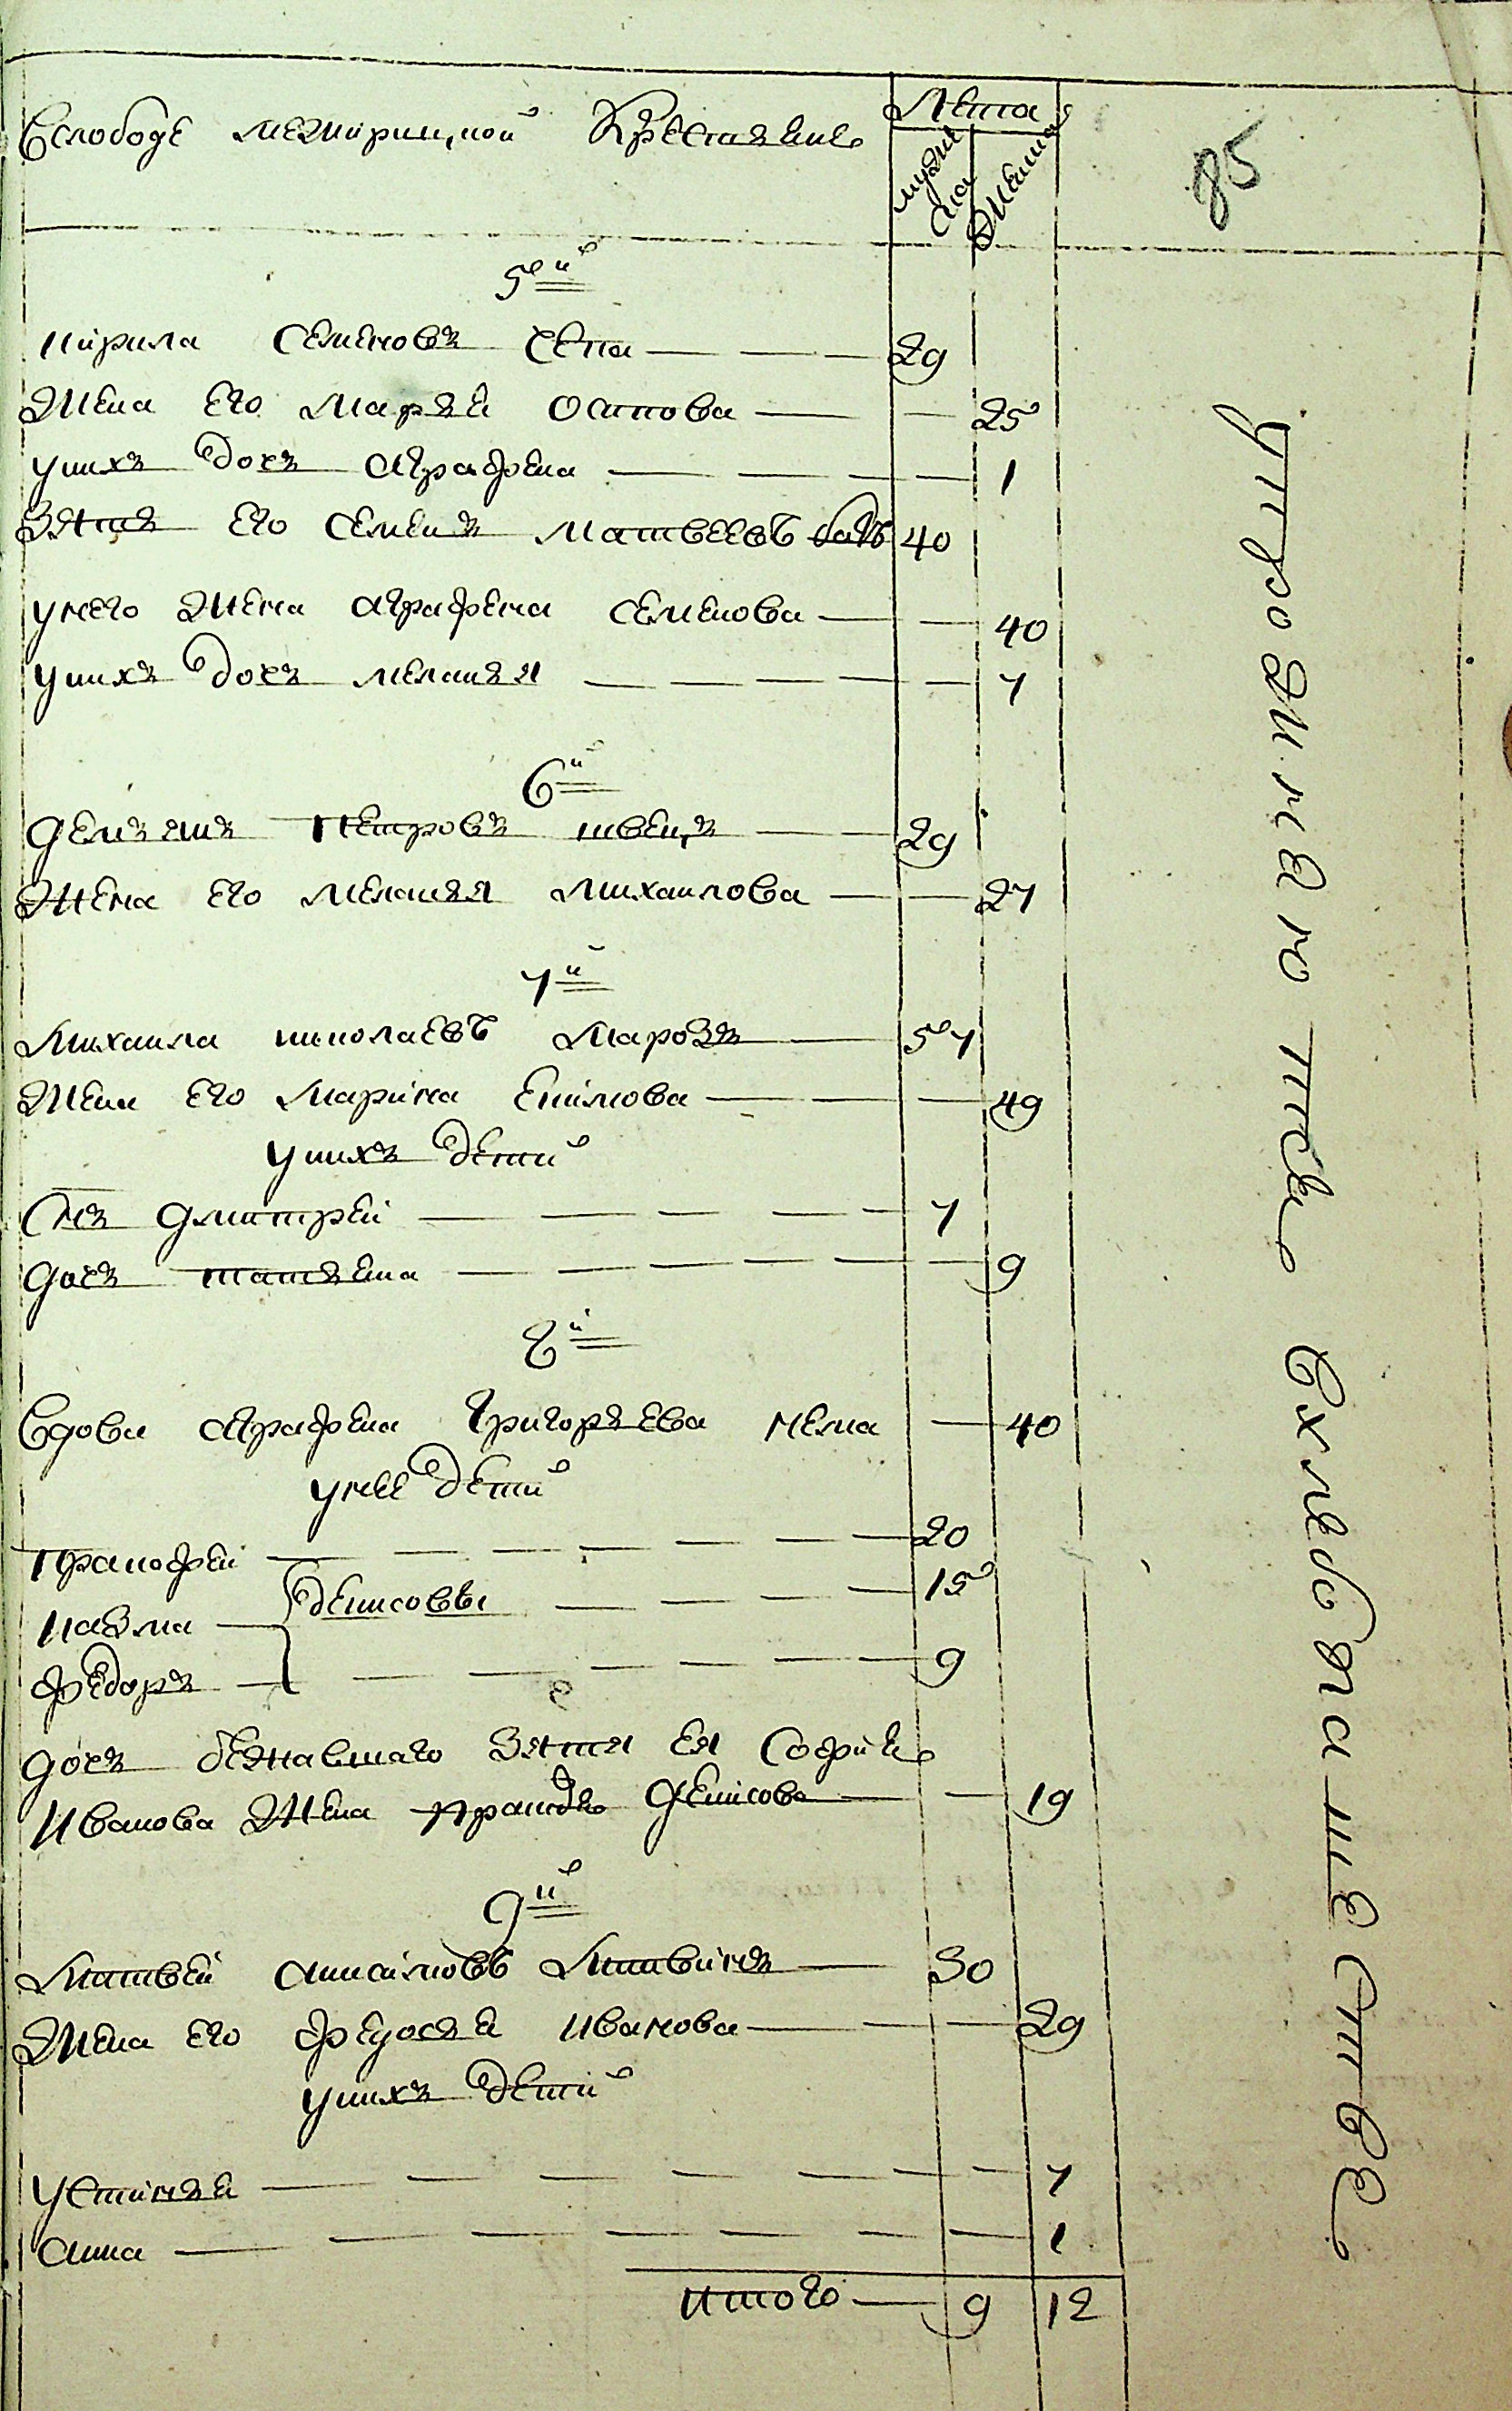 Вслободе межирицкой Крестьянъ
Лета
мужеска
женска
85
5й
кирила Семеновъ Чепа — 29
Жена его Марья Осипова — 25
унихъ дочь аграфена — 1
Зять его Семенъ Матвеевъ 40
унего жена аграфена Семенова — 40
унихъ дочь меланья — 7
6й
Демьянъ Петровъ швецъ — 29
Жена его Меланья Михаилова — 27
7й
Михаила николаевъ Марозъ — 57
Жена его Марина Ефимова — 49
унихъ дети
Снъ Дмитрей — 7
Дочь татьяна — 9
8й
Вдова аграфена Григорьева — 40
унее дети
Прокофей — 20
Казма — денисовы — 15
Федоръ — 9
Дочь бежавшаго Зятя ея Софрия
Иванова жена Денисова — 19
9й
Матвей Литвинъ — 30
Жена его Федосья иванова — 29
унихъ дети
устинья — 7
анна — 1
итого — 9 12
упражнение вхлебопашестве